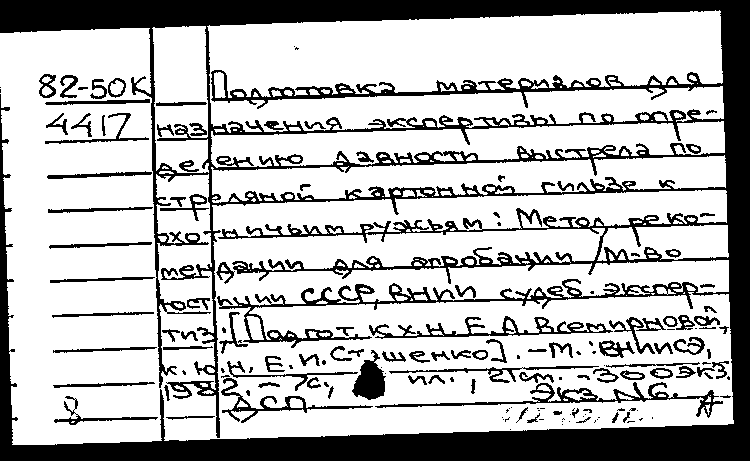 82-50К Подготовка материалов для
4417 назначения экспертизы по опре-
делению давности выстрела по
стреляной картонной гильзе к
охотничьим ружьям: Метод. реко-
мендации для апробации /М-во
юстиции СССР, ВНИИ судеб. экспер-
тиз; [Подгот. к.х.н. Е.Д. Всемирновой,
к.ю.н. Е.И. Сташенко]. -М.: ВНИИСЭ,
1982. - 7с., ил.; 21см. -300экз.
ДСП Экз N6.
8 А